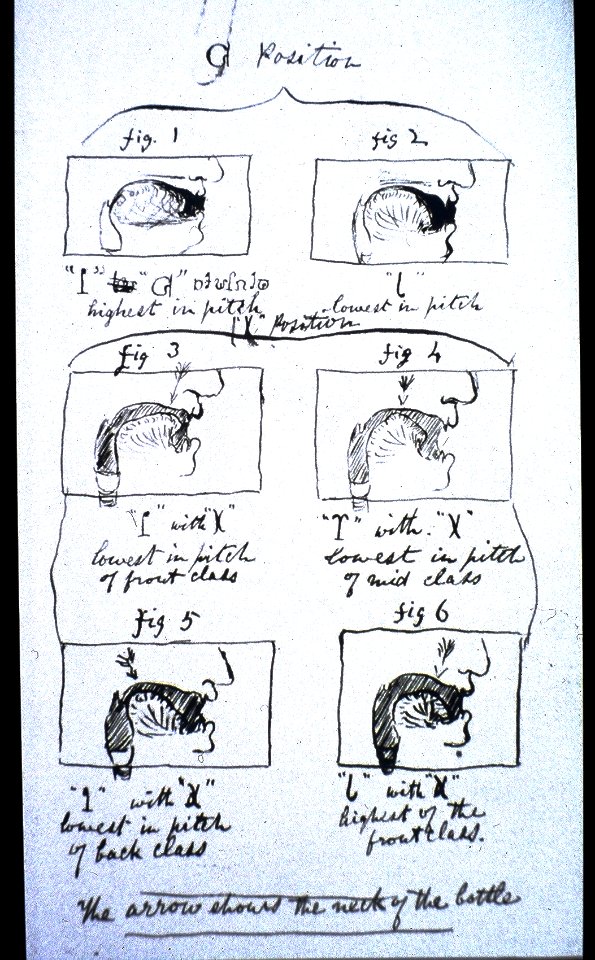 Position
fig. 1
fig 2
highest in pitch
lowest in pitch
Position
fig 3
fig 4
with
lowest in pitch
of front class
with.
Lowest in pitch
of mid class
fig 5
fig 6
with
lowest in pitch
of back class
with
highest of the
front class.
The arrow shows the neck of the bottle